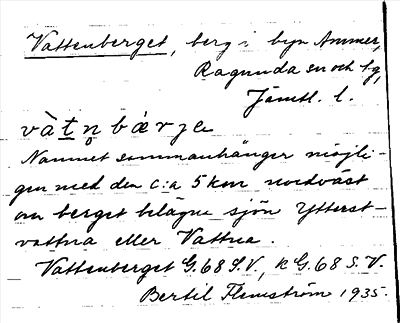 Vattenberget, berg i byn Ammer,
Ragunda sn och tg,
Jämtl. l.
vàt̲n̥bǽrjə
Namnet sammanhänger möjli-
gen med den c:a 5 km nordväst
om berget belägna sjön Ytterst-
vattna eller Vattna.
Vattenberget G.68 S.V., k G.68 S.V.
Bertil Flemström 1935.